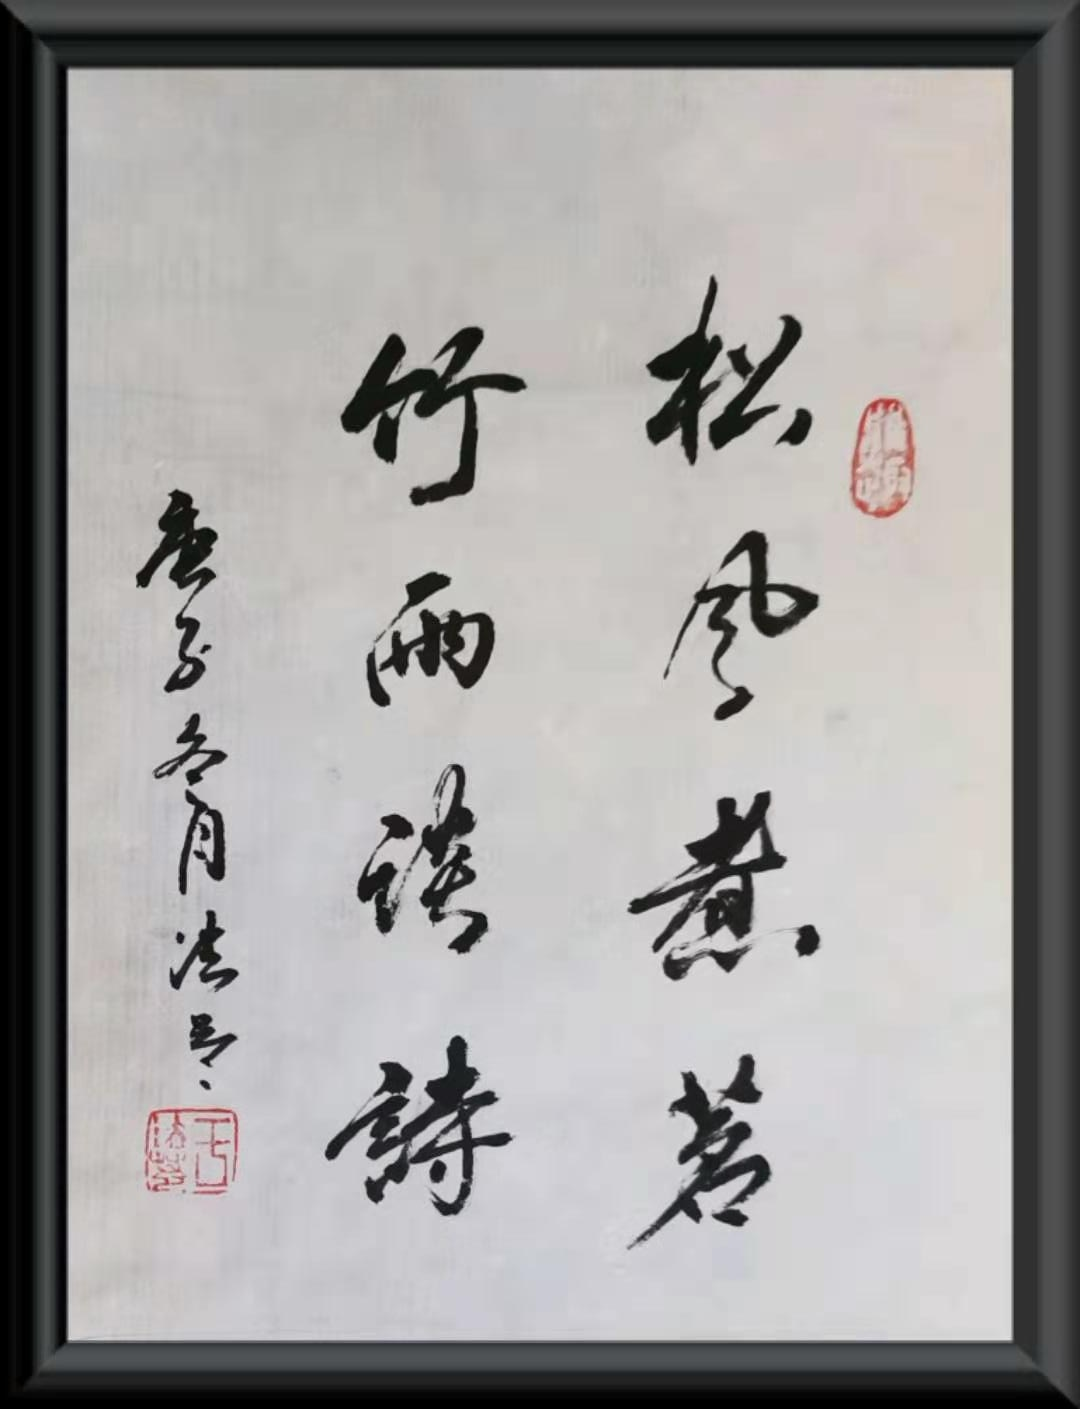 松風煮茗
竹雨談詩
庚子冬月法